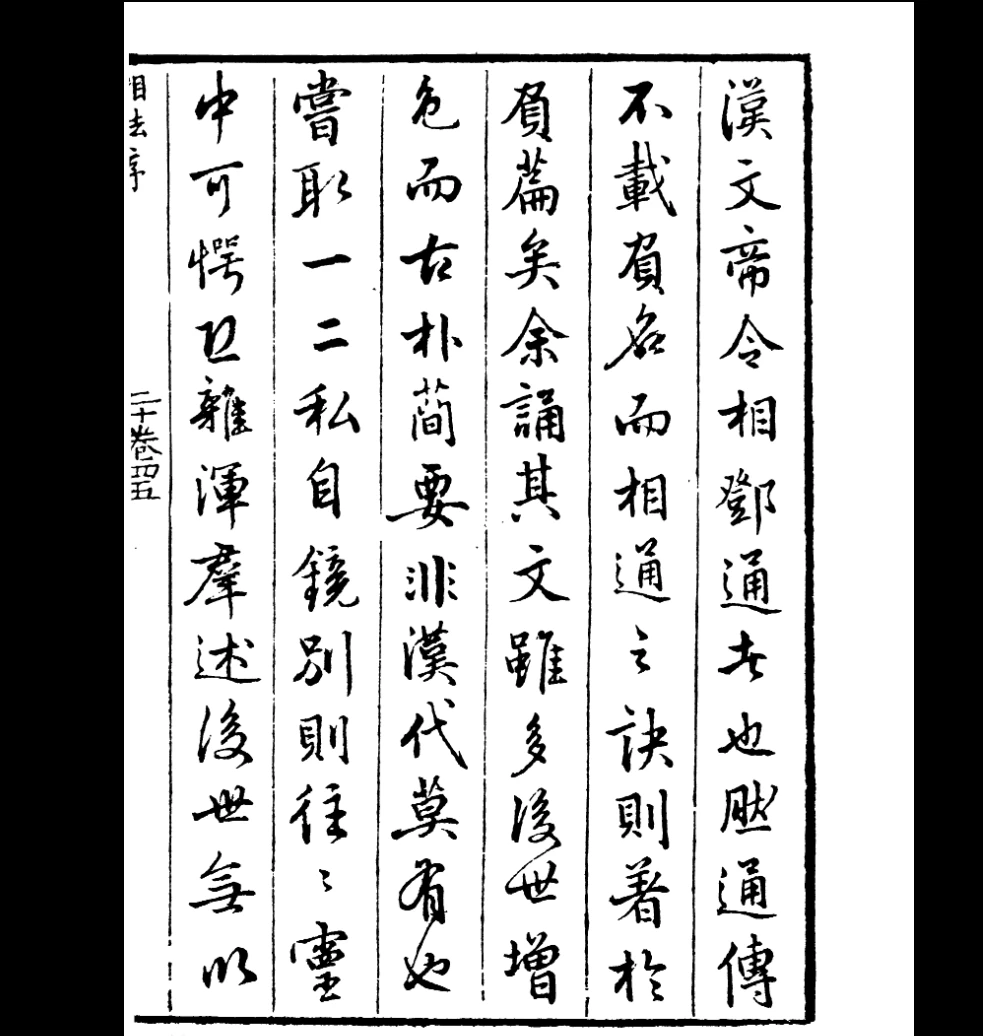 漢文帝令相鄧通者也然通傳
不載負名而相通之訣則著於
負篇矣余誦其文雖多後世增
色而古朴簡要非漢代莫有也
嘗取一二私自鏡別則往〻靈
中可愕且雜渾羣述後世無以
相法序
二十卷四五